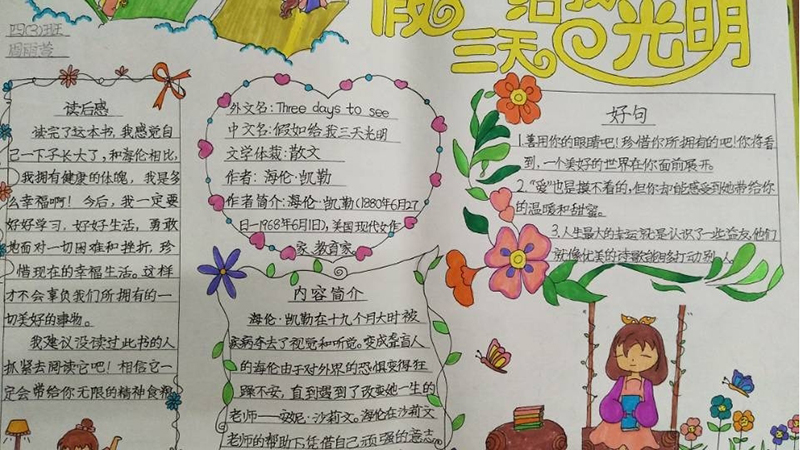 假 给我
三天 光明
四(3)班
读后感
读完了这本书,我感觉自
己一下子长大了,和海伦相比,
我拥有健康的体魄,我是多
么幸福啊! 今后,我一定要
好好学习,好好生活,勇敢
地面对一切困难和挫折,珍
惜现在的幸福生活。这样
才不会辜负我们所拥有的一
切美好的事物。
我建议没读过此书的人
抓紧去阅读它吧! 相信它一
定会带给你无限的精神食粮
外文名: Three days to see
中文名: 假如给我三天光明
文学体裁: 散文
作者: 海伦·凯勒
作者简介: 海伦·凯勒(1880年6月27
日—1968年6月1日), 美国现代女作
家、教育家
内容简介
海伦·凯勒在十九个月大时被
疾病夺去了视觉和听觉。变成盲聋人
的海伦由于对外界的恐惧变得狂
躁不安, 直到遇到了改变她一生的
老师——安妮·沙莉文。海伦在沙莉文
老师的帮助下凭借自己顽强的意志
好句
1.善用你的眼睛吧!珍惜你所拥有的吧!你将看
到,一个美好的世界在你面前展开。
2.“爱”也是摸不着的,但你却能感受到她带给你
的温暖和甜蜜。
3.人生最大的幸运就是认识了一些益友,他们
就像优美的诗歌能够打动别人。